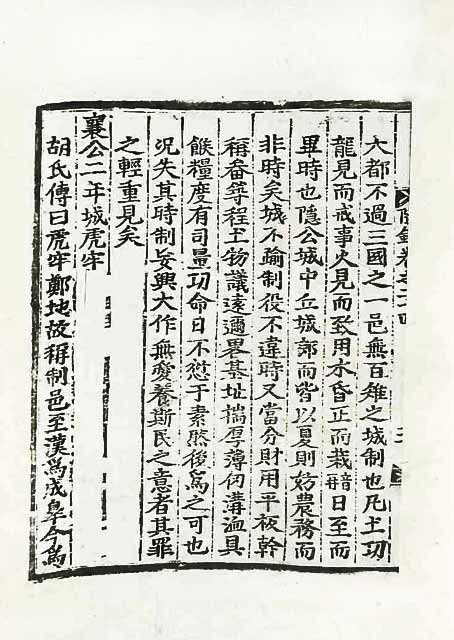 大都不過三國之一邑無百雉之城制也凡土功
龍見而戒事火見而致用水昏正而栽音再日至而
畢時也隱公城中丘城郎而皆以夏則妨農務而
非時矣城不踰制役不違時又當分財用平板幹
稱畚築程土物議遠邇畧基址揣厚薄仞溝洫具
餱糧度有司量功命日不愆于素然後爲之可也
況失其時制妄興大作無愛養斯民之意者其罪
之輕重見矣
襄公二年城虎牢
胡氏傳曰虎牢鄭地故稱制邑至漢爲成臯今爲